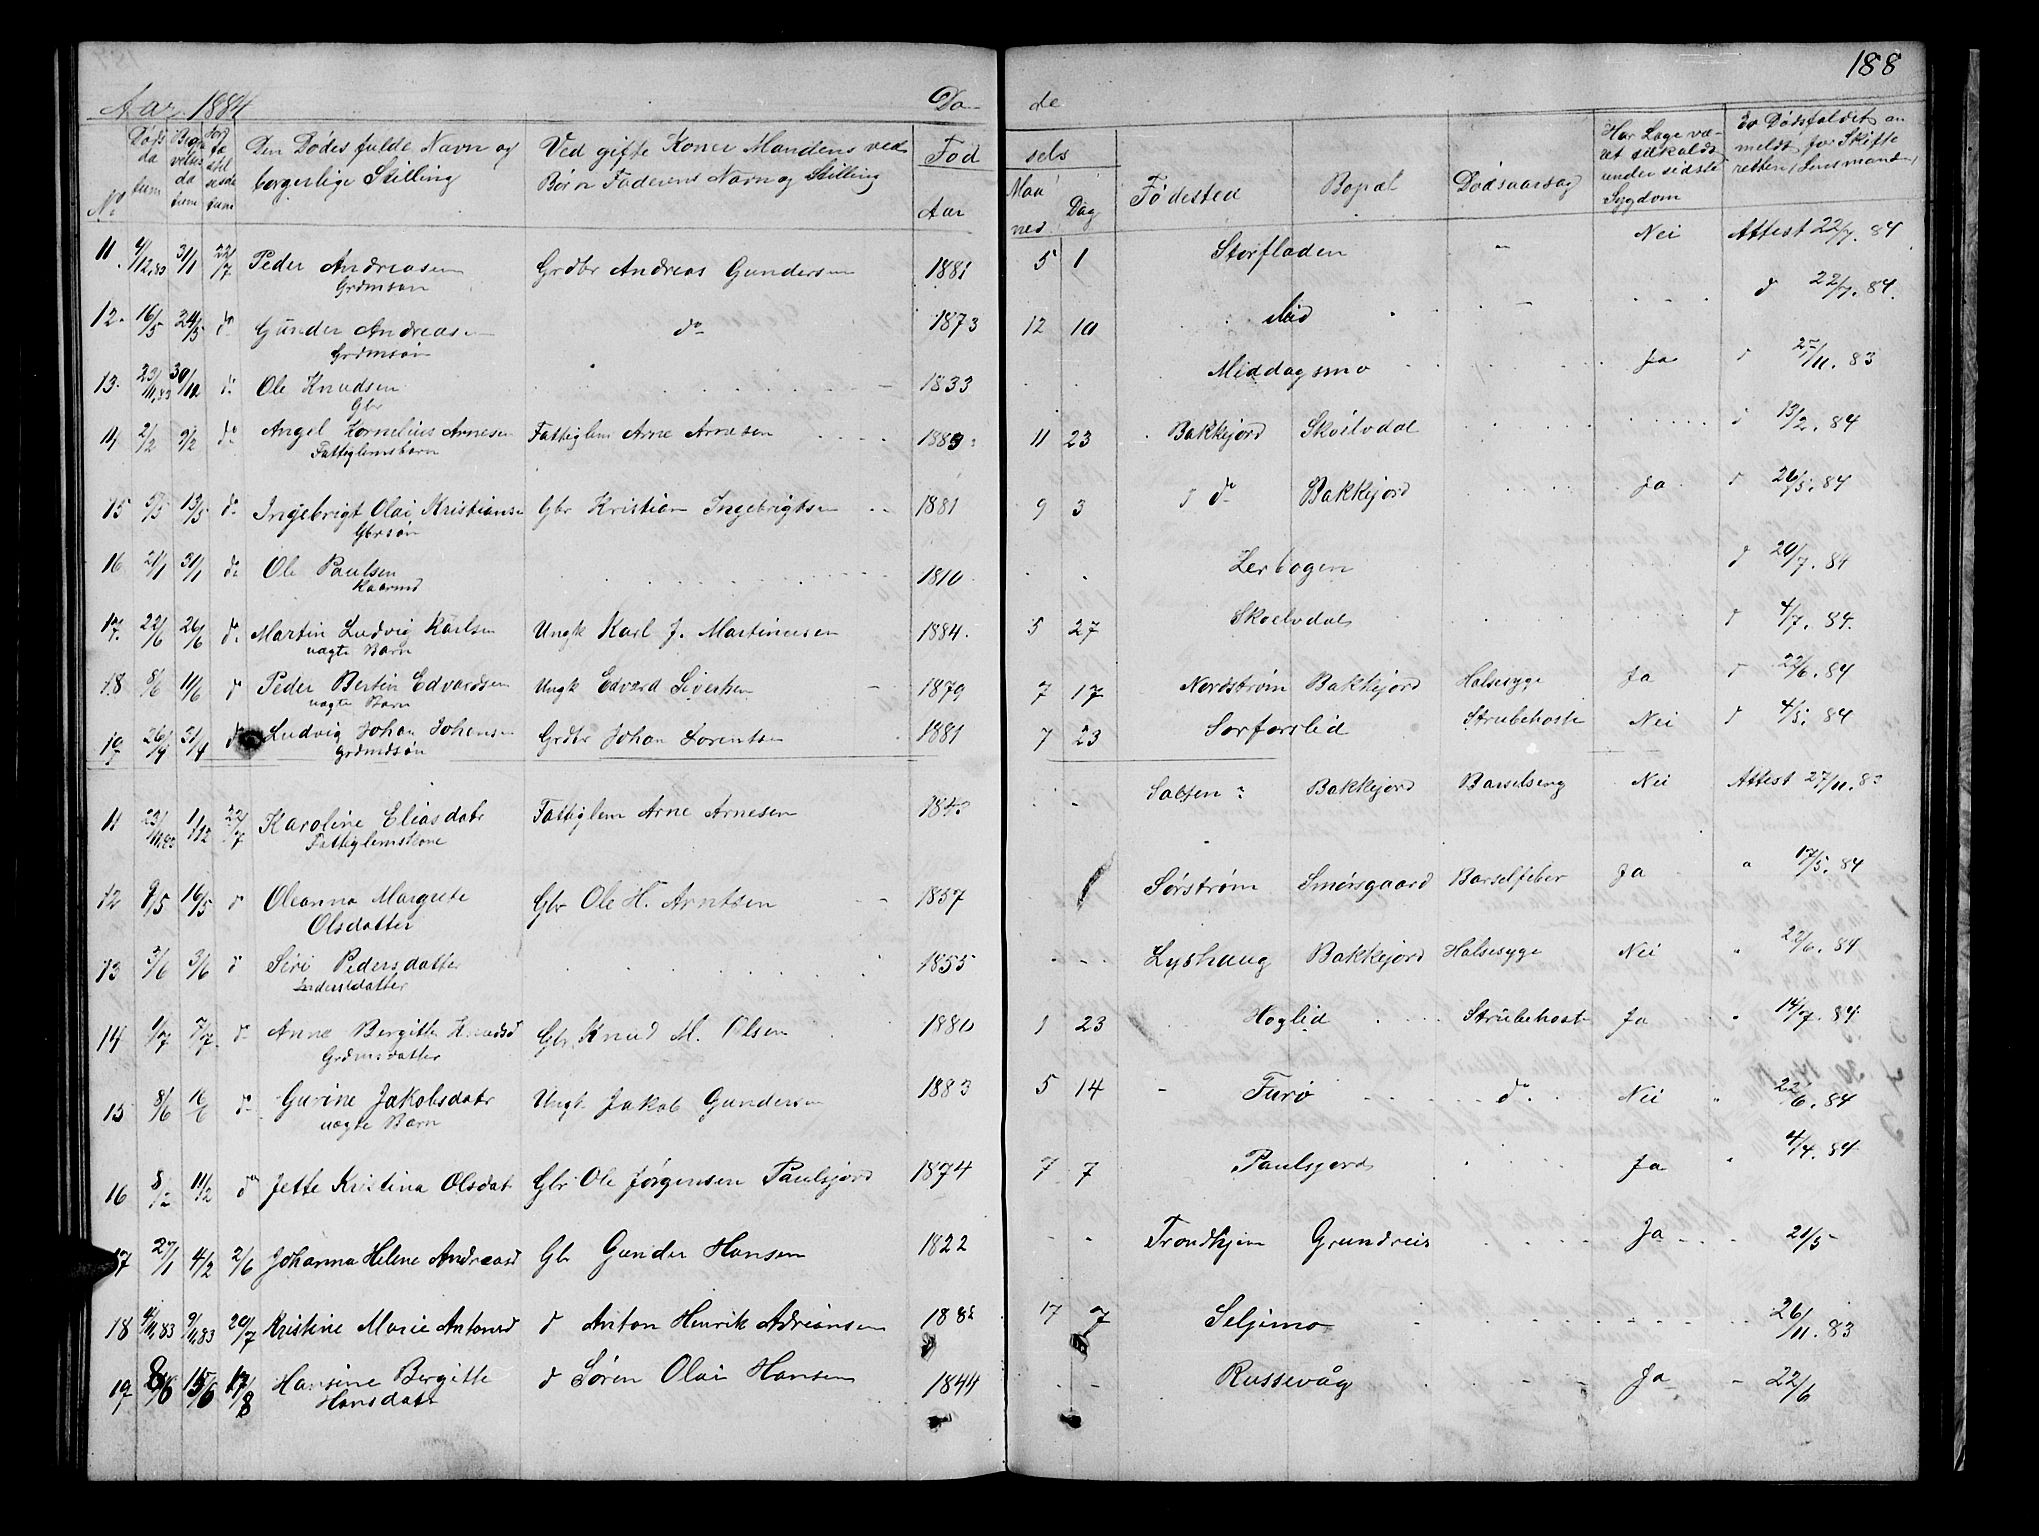 188
Aar 1884 Dø- de
No Døds da tum Begra velses da tum Jord fæ stel sesda tum Den Dødes fulde Navn og borgerlige Stilling Ved gifte Koner Mandens ved Børn Faderens Navn og Stilling Fød sels Aar Maa ned Dag Fødested Bopæl Dødsaarsag Har Læge væ- ret tilkaldt under sidste Sygdom Er Dødsfaldet an meldt for Skifte retten, Lensmanden
11. 4/12.83 31/1 22/7 Peder Andreasen Grdbr Andreas Gundersen 1881 5 1 Storfladen " Nei Attest 22/7. 84
Grdmsøn
12. 16/5 24/5 do Gunder Andreasen do 1873 12 10 d 22/7. 84.
Grdmsøn
13. 23/11.83 30/12 d. Ole Knudsen 1833 Middagsmo Ja d 27/11. 83
Gbr
14 2/2 9/2 do Angel Kornelius Arnesen Fattiglem Arne Arnesen 1883 11 23 Bakkejord Skøelvdal d 13/2. 84
Fattiglemsbarn
15 5/5 13/5 do Ingebrigt Olai Kristianse Gbr Kristian Ingebrigtsen 1881 9 3 do Bakkejord Ja d 26/5. 84
Gbrsøn
16 21/1 31/1 do Ole Paulsen 1810 Lerbogen d 20/7. 84
Kaarmd
17. 22/6 26/6 do Martin Ludvig Karlsen Ungk Karl J. Martinusen 1884. 5 27 Skoelvdal d 4/7. 84.
uægte Barn
18 8/6 11/6 d Peder Bertin Edvardsen Ungk Edvard Sivertsen 1879 7 17 Nordstrøm Bakkejord Halsesyge Ja d 22/6. 84
uægte Barn
19 26/4 31/4 d Ludvig Johan Johansen Grdbr Johan Lorentsen 1881 7 23 Sorforslid Strubehoste Nei d 4/5. 84
Grdmdsøn
11 23/11.83 1/12 22/7 Karoline Eliasdatr Fattiglem Arne Arnesen 1843 Salten Bakkejord Barselseng Nei Attest 27/11. 83
Fattiglemskone
12 9/5 16/5 d Oleanna Margrete Gbr Ole H. Arntsen 1857 Sørstrøm Smørsgaard Barselfeber Ja " 17/5. 84
Olsdatter
13 3/6 3/6 d Siri Pedersdatter 1855 Lyshaug Bakkejord Halsesyge Nei " 22/6. 84
Indersdatter
14 1/7 7/7 d Anne Bergitte Knudsd Gbr Knud M. Olsen 1880 1 23 Hoglid Strubehoste Ja " 14/7. 84
Grdmsdatter
15 8/6 16/6 do Gurine Jakobsdatr Ungk Jakob Gundersen 1883 5 14 Furø do Nei " 22/6. 84
uægte Barn
16 8/2 11/2 do Jette Kristina Olsdat Gbr Ole Jørgensen Paulsjord 1874 7 7 Paulsjord Ja " 4/4. 84
17 27/1 4/2 2/6 Johanna Helene Andreasd Gbr Gunder Hansen 1822 - " Trondhjem Grundreis Ja 21/5
18 4/11.83 9/11.83 20/7 Kristine Marie Antonsd d Anton Henrik Adriansen 1882 17 7 Seljemo 26/11. 83
19 8/6 15/6 17/8 Hansine Bergitte d Søren Olai Hansen 1844 - - Russevåg Ja 22/6
Hansdatr